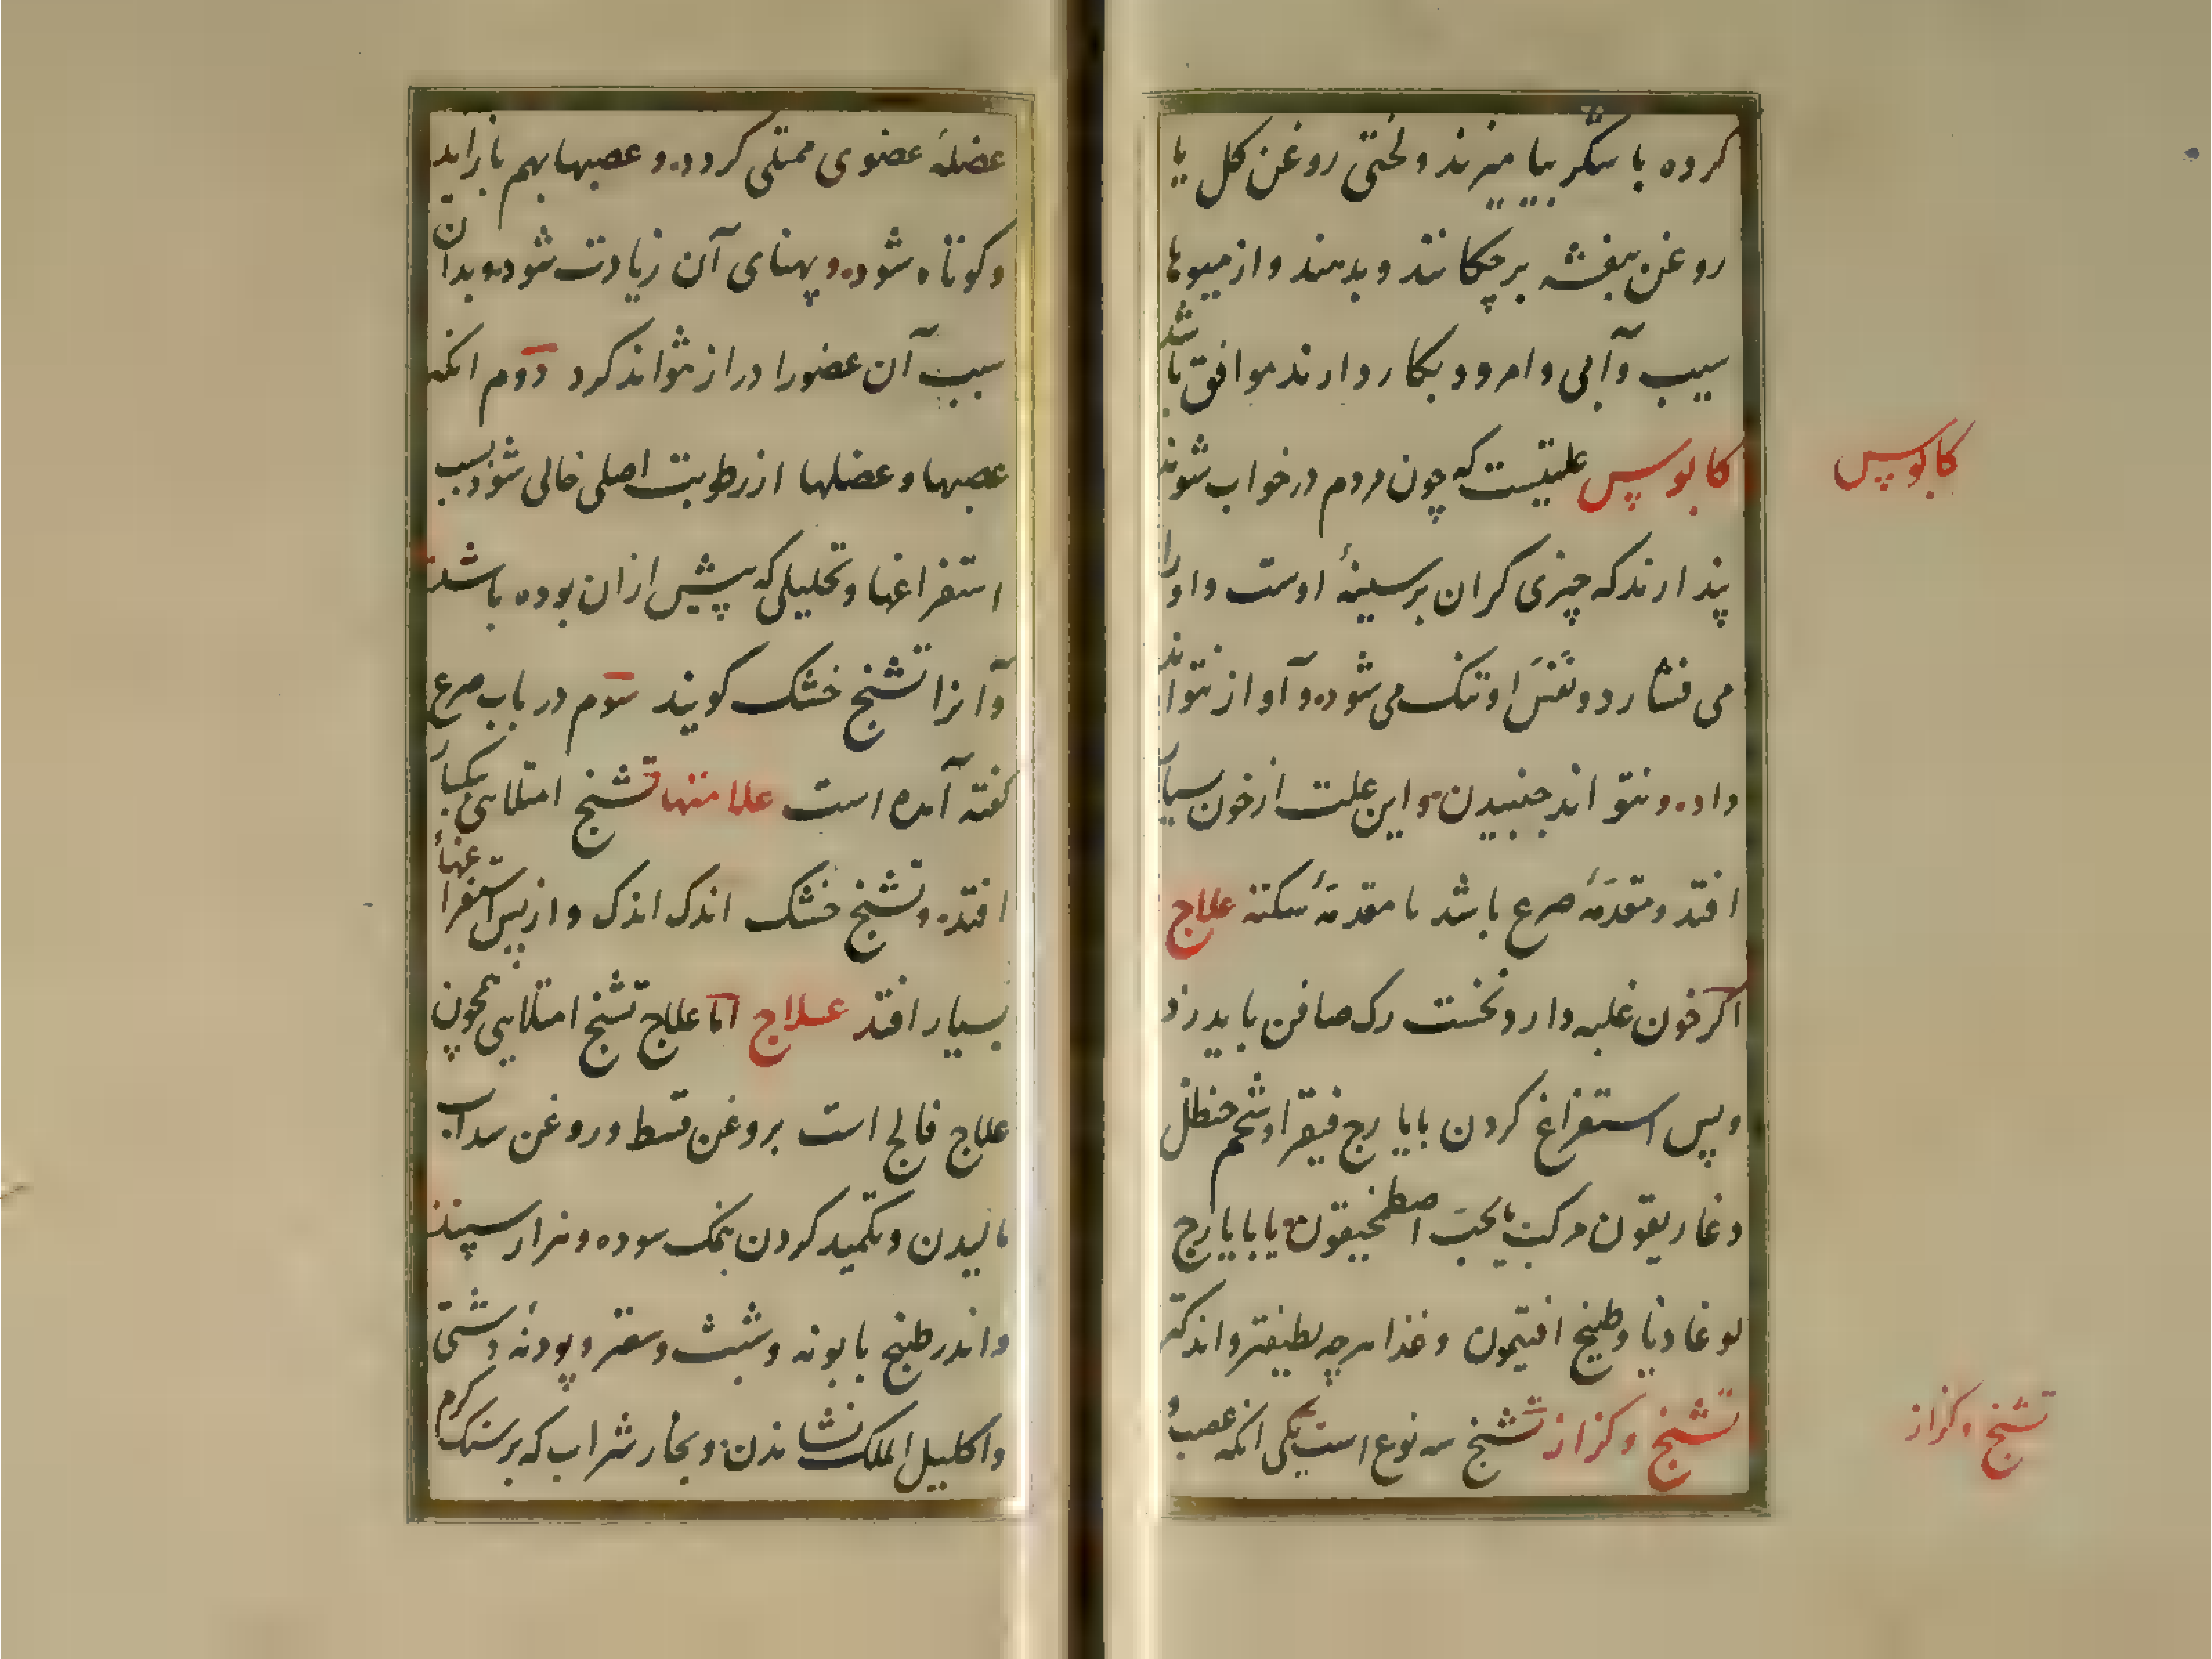 کرده با سکّر بیامیزند و لختی روغن کل یا
روغن بنفشه برچکانند و بدهند و از میوها
سیب و آبی و امرود بکار دارند موافق باشد
کابوس
کابوس علتیست که چون مردم در خواب شوند
پندارند که چیزی کران بر سینهٔ اوست و او را
می فشارد و نفَس او تنک می شود و آواز نتواند
داد و نتواند جنبیدن و این علت از خون سیاه
افتد و مقدّمهٔ صرع باشد یا مقدّمهٔ سکته علاج
اکر خون غلبه دارد نخست رک صافن باید زد
و پس استفراغ کردن بایارج فیقرا و شحم حنظل
و غاریقون مرکب یا بحبّ اصطمخیقون یا بایارج
لوغادیا و طبیخ افتیمون و غذا هرچه لطیفتر و اندکتر
تشنّج و کزاز
تشنّج و کزاز تشنّج سه نوع است یکی انکه عصب و
عضلهٔ عضوی ممتلی کردد و عصبها بهم باز اید
و کوتاه شود و پهنای آن زیادت شود و بدان
سبب آن عضو را دراز نتواند کرد دوم انکه
عصبها و عضلها از رطوبت اصلی خالی شود بسبب
استفراغها و تحلیلی که پیش از ان بوده باشد
و آنرا تشنّج خشک کویند سوم در باب صرع
کفته آمده است علامتها تشنّج امتلایی یکبار
افتد و تشنّج خشک اندک اندک و از پس استفراغهاء
بسیار افتد علاج امّا علاج تشنّج امتلایی همچون
علاج فالج است بروغن قسط و روغن سداب
مالیدن و تکمید کردن بنمک سوده و هزار سپند
و اندر طبیخ بابونه و شبث و سعتر و پودنهٔ دشتی
و اکلیل الملک نشاندن و بخار شراب که بر سنک کرم